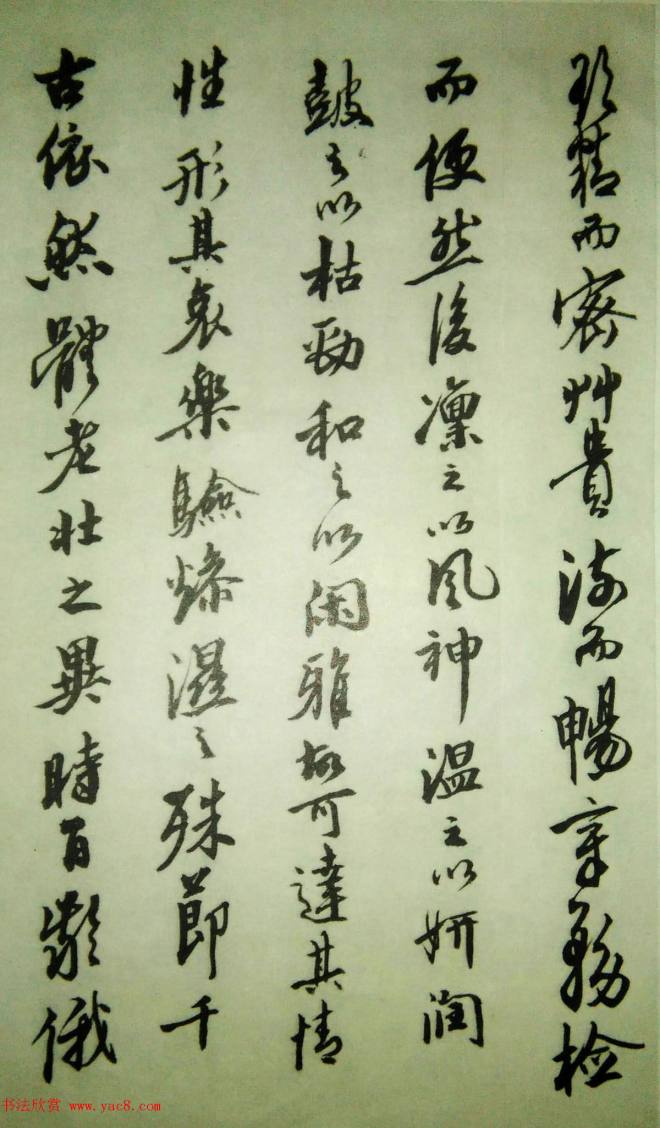 欲精而密艸貴流而暢章務檢
而便然後凜之以風神温之以妍润
鼓之以枯勁和之以闲雅故可達其情
性形其哀樂驗燥濕之殊節千
古依然體老壯之異時百齡俄
书法欣赏 www.yac8.com